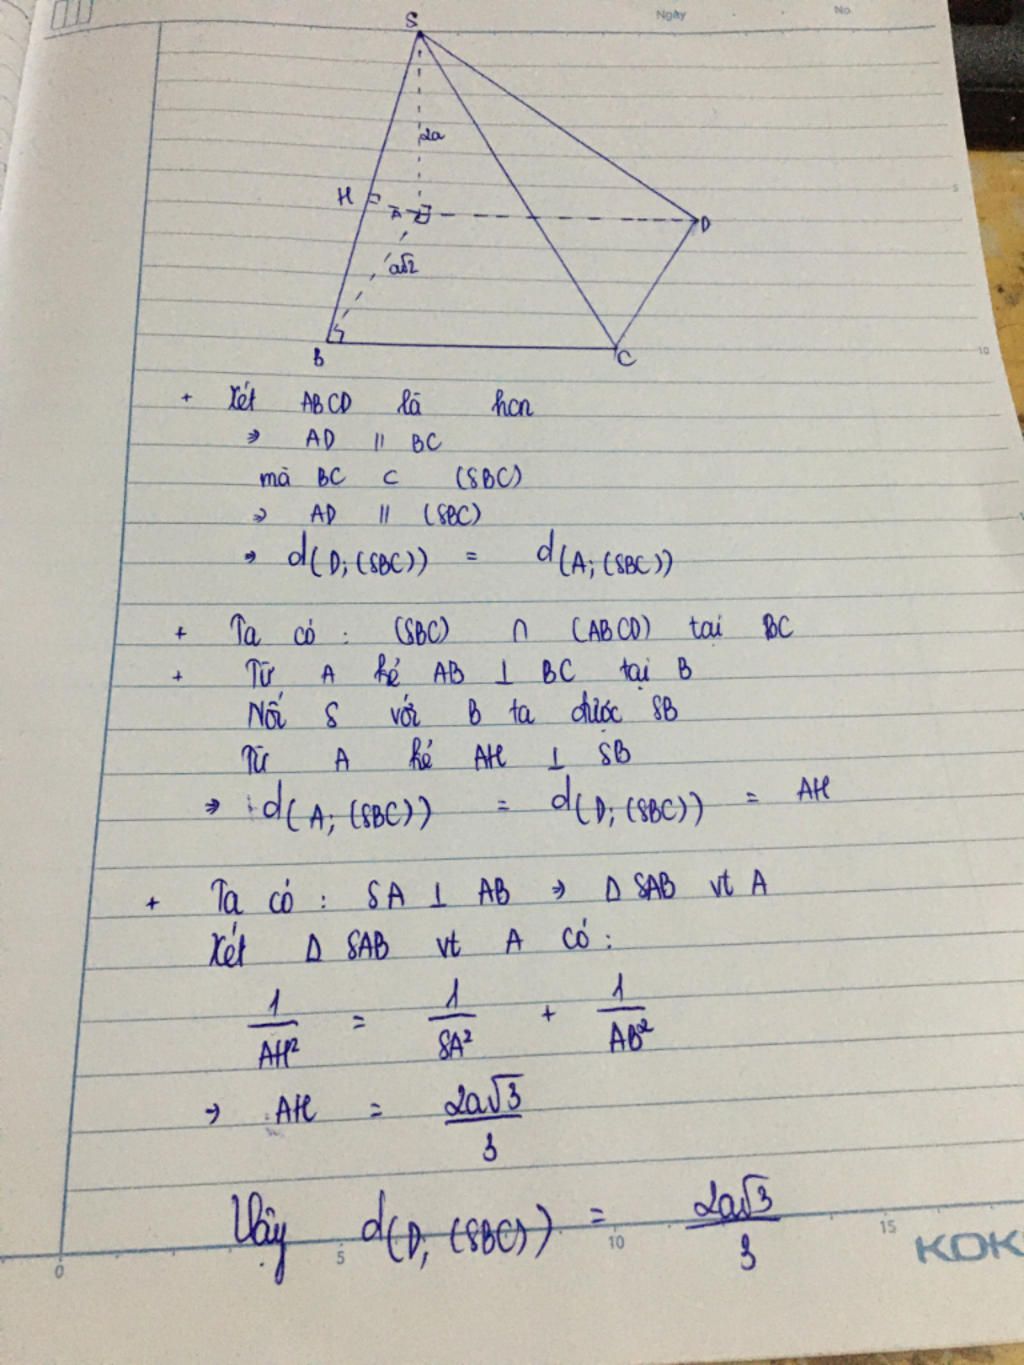 Ngày No.
S
2a
H A D
a√2
B C
5
10
+ Xét ABCD là hcn
⇒ AD // BC
mà BC ⊂ (SBC)
⇒ AD // (SBC)
⇒ d(D; (SBC)) = d(A; (SBC))
+ Ta có : (SBC) ∩ (ABCD) tại BC
+ Từ A kẻ AB ⊥ BC tại B
Nối S với B ta được SB
Từ A kẻ AH ⊥ SB
⇒ d(A; (SBC)) = d(D; (SBC)) = AH
+ Ta có : SA ⊥ AB ⇒ Δ SAB vt A
Xét Δ SAB vt A có :
1/AH² = 1/SA² + 1/AB²
⇒ AH = 2a√3/3
Vậy d(D, (SBC)) = 2a√3/3
0 5 10 15 KOK